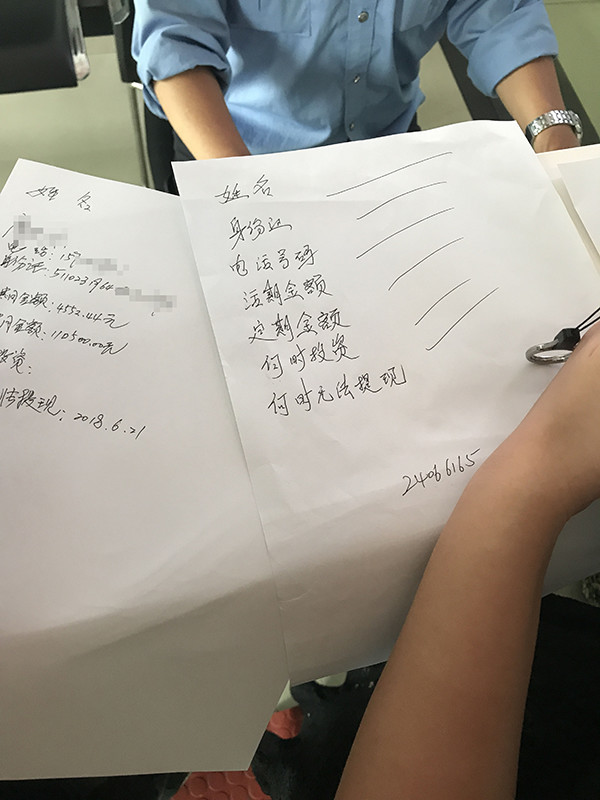 姓名
电话:159
身份证:5110231964
期金额:4552.44元
金额:110500.00元
投资:
法提现:2018.6.21
姓名
身份证
电话号码
活期金额
定期金额
何时投资
何时无法提现
24066165